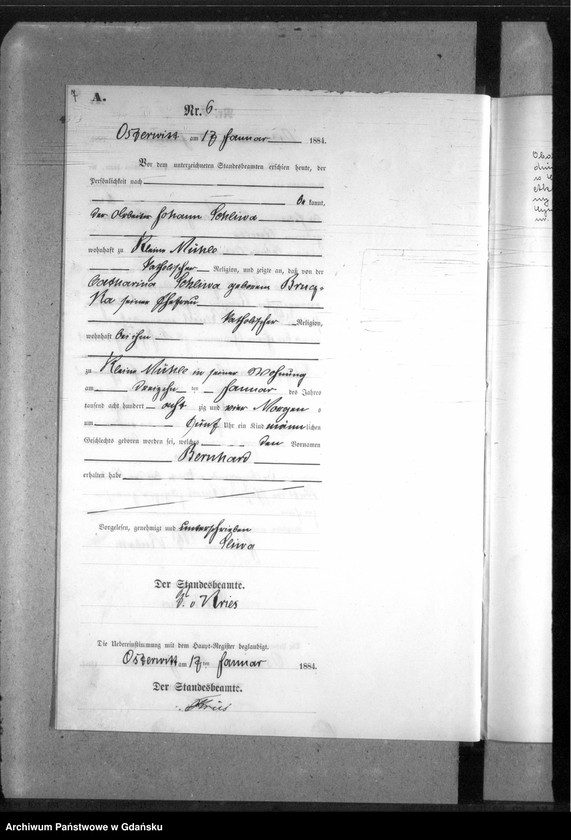 7
A.
Nr. 6
Osterwitt am 17 Januar 1884.
Vor dem unterzeichneten Standesbeamten erschien heute, der
Persönlichkeit nach
be kannt,
der Arbeiter Johann Schliwa
wohnhaft zu Kleine Mühle
katholischer Religion, und zeigte an, daß von der
Catharina Schliwa geborenen
seiner Ehefrau
katholischer Religion,
wohnhaft bei ihm
zu Kleine Mühle in seiner Wohnung
am dreizehn ten Januar des Jahres
tausend acht hundert acht zig und vier Morgens
um fünf Uhr ein Kind männ lichen
Geschlechts geboren worden sei, welches den Vornamen
Bernhard
erhalten habe
Vorgelesen, genehmigt und unterschrieben
Sliwa
Der Standesbeamte.
v. Kries
Die Uebereinstimmung mit dem Haupt-Register beglaubigt.
Osterwitt am 17 ten Januar 1884.
Der Standesbeamte.
Kries
Archiwum Państwowe w Gdańsku